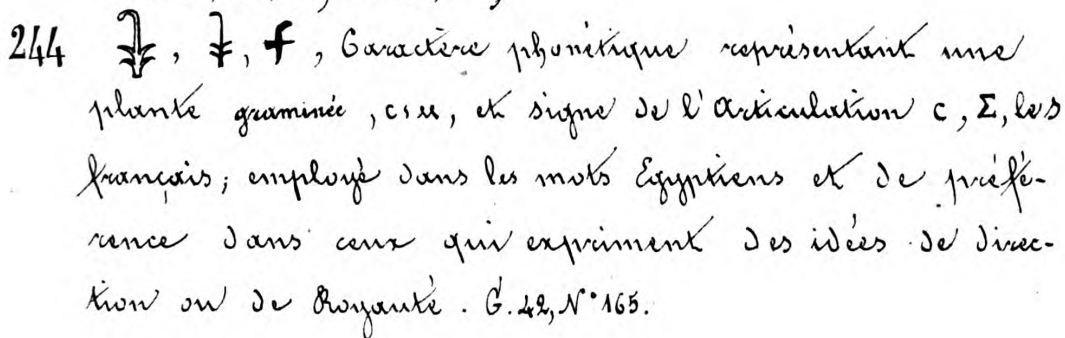 244 𓇓, , , Caractère phonétique représentant une
plante graminée, ⲥⲓⲙ, et signe de l'articulation ⲥ, Σ, les
français; employé dans les mots Egyptiens et de préfé-
rence dans ceux qui expriment des idées de direc-
tion ou de Royauté. G. 42, N° 165.